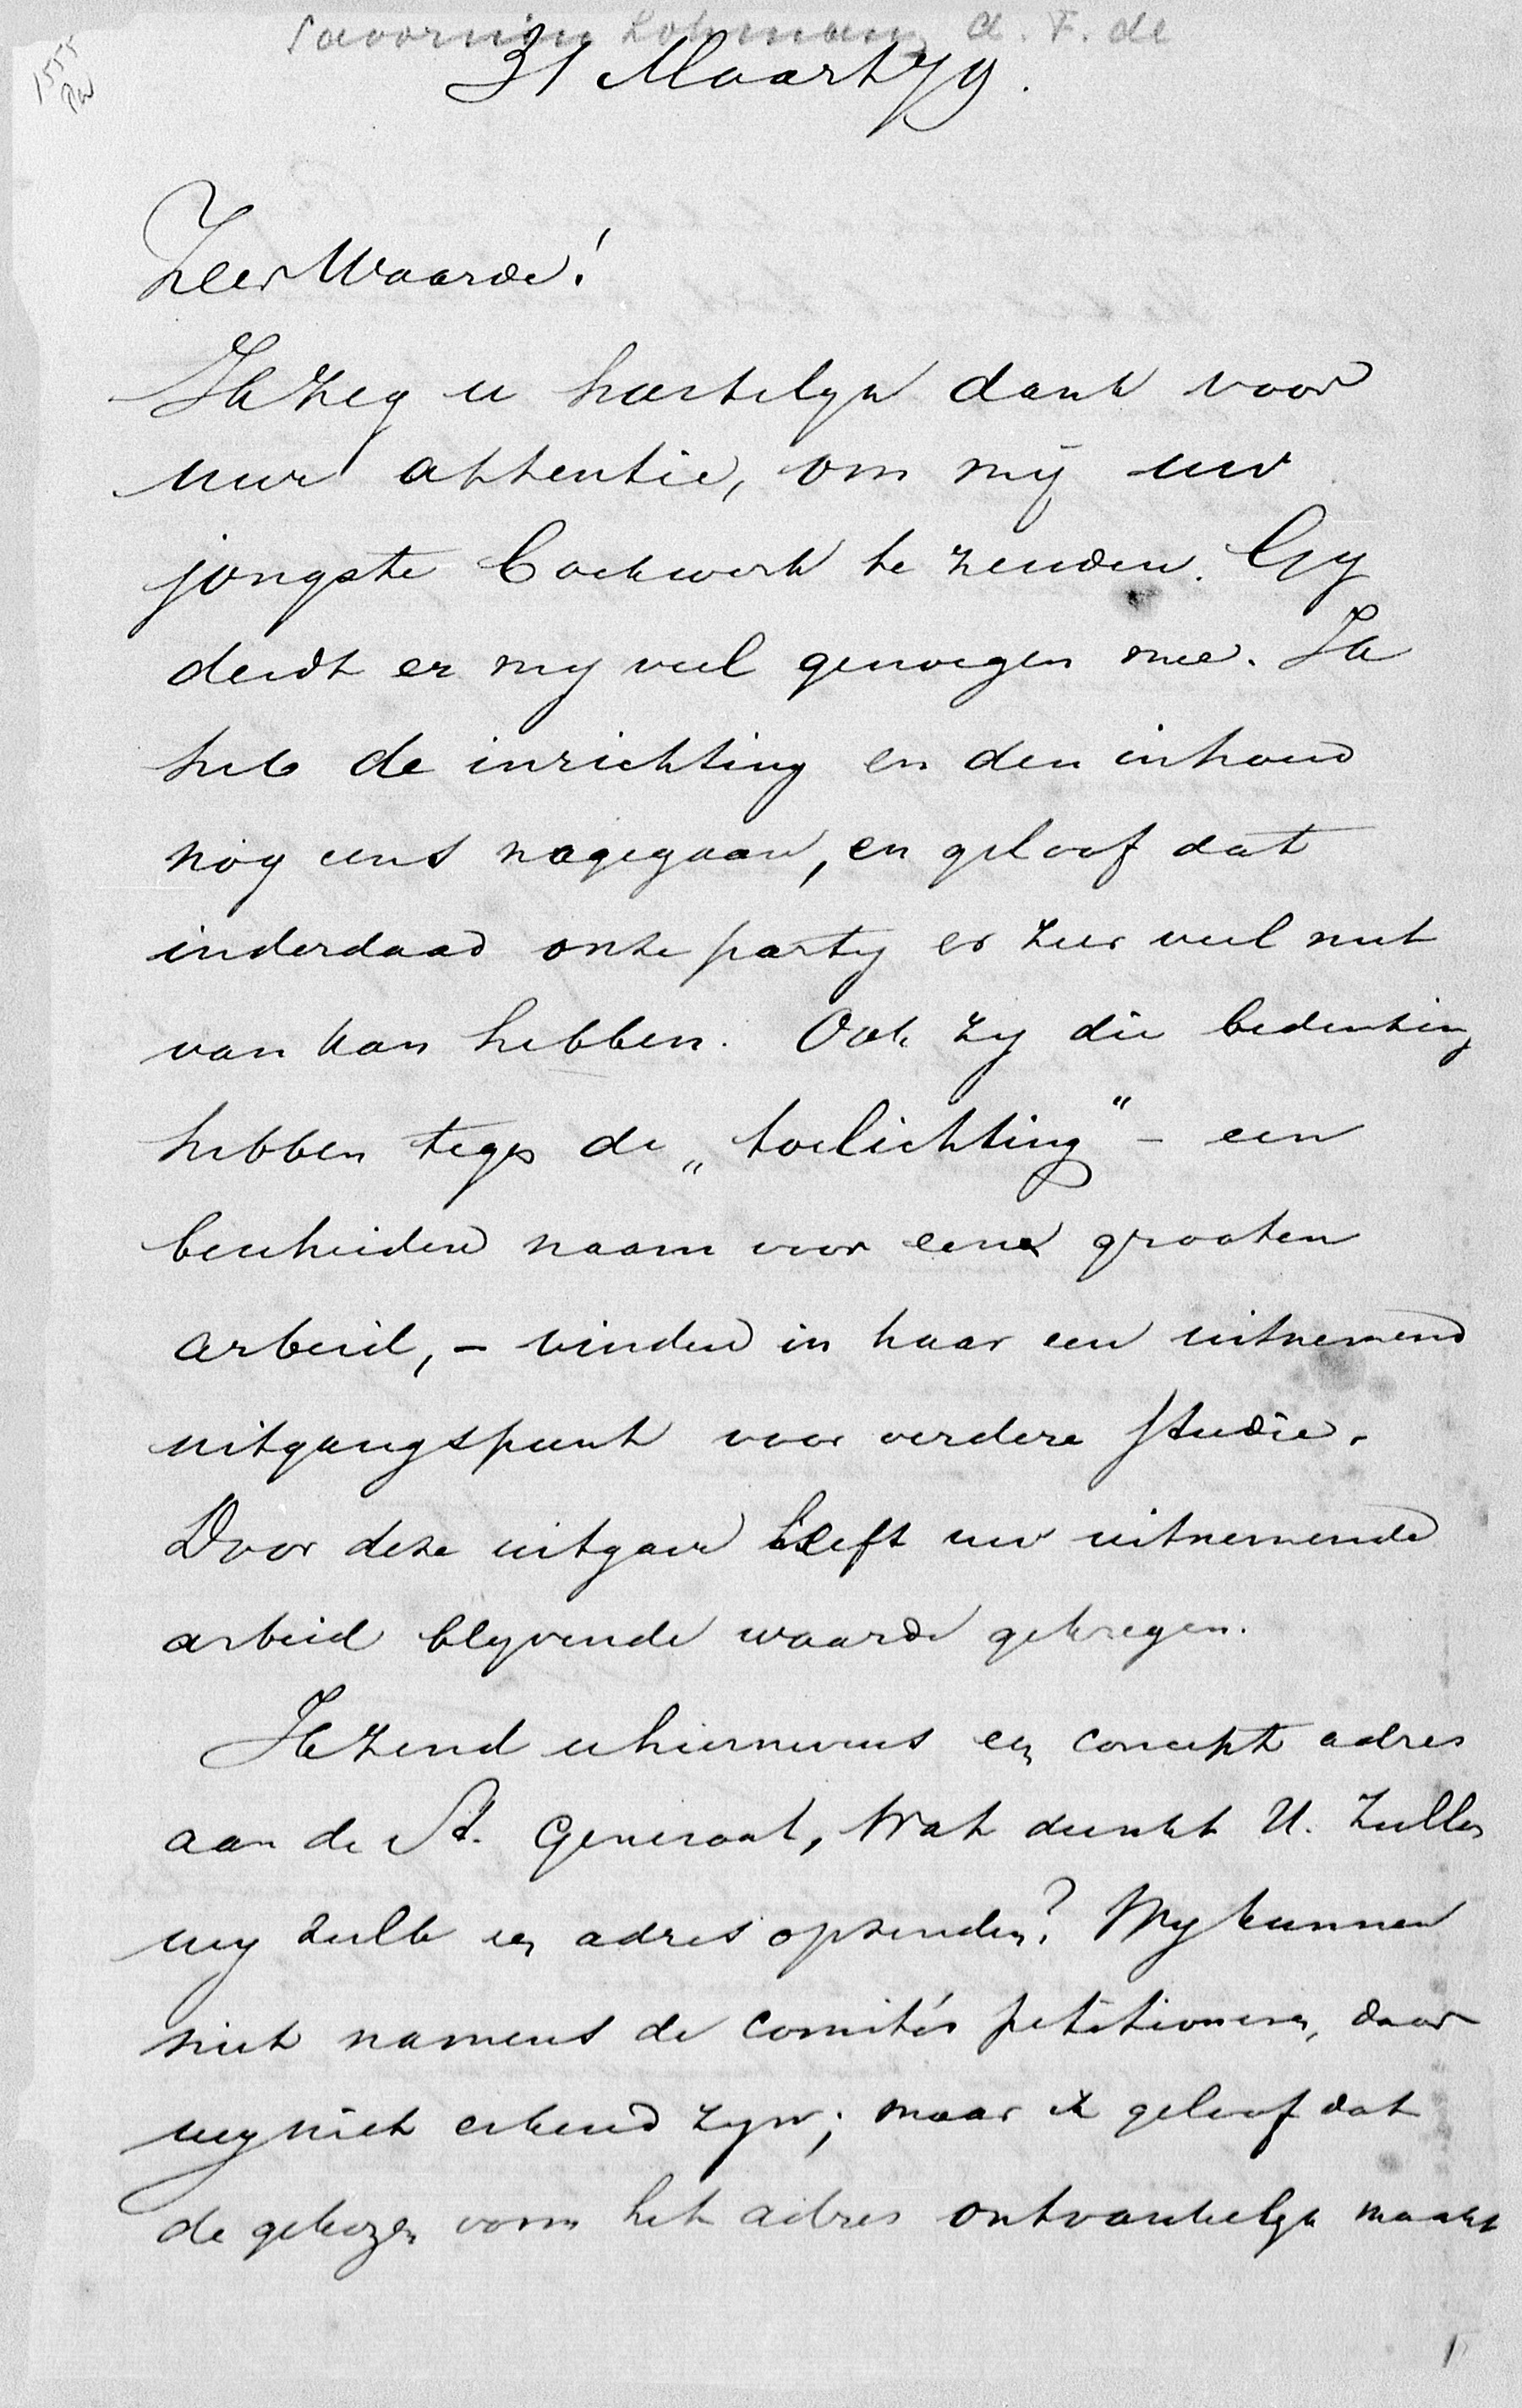 Savornin Lohman, A. F. de
1555
31 Maart 79.
Zeer Waarde!
Ik zeg u hartelyk dank voor
uwe attentie, om mij uw
jongste boekwerk te zenden. Gy
deedt er my veel genoegen mee. Ik
heb de inrichting en den inhoud
nog eens nagegaan, en geloof dat
inderdaad onze party er zeer veel nut
van kan hebben. Ook zy die bedenking
hebben tegen de „toelichting" – een
bescheiden naam voor een grooten
arbeid, – vinden in haar een uitnemend
uitgangspunt voor verdere studie.
Door deze uitgave heeft uw uitnemende
arbeid blyvende waarde gekregen.
Ik zend u hiernevens een concept adres
aan de St. Generaal, Wat dunkt U. Zullen
wy zulk een adres opzenden? Wy kunnen
niet namens de comités petitioneren, daar
wy niet erkend zyn; maar ik geloof dat
de gekozen vorm het adres ontvankelyk maakt